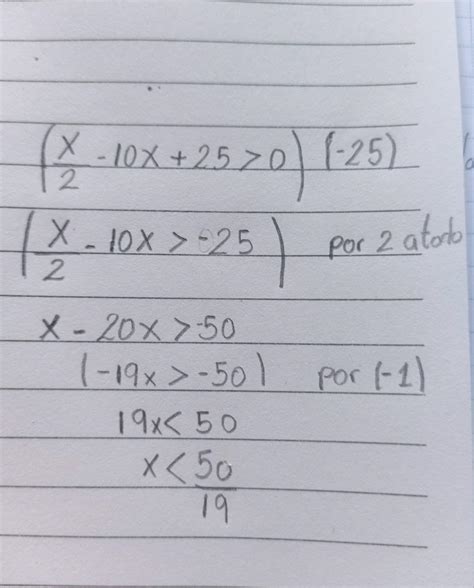 (x/2 - 10x + 25 > 0) (-25)
(x/2 - 10x > -25) por 2 a todo
x - 20x > -50
(-19x > -50) por (-1)
19x < 50
x < 50/19